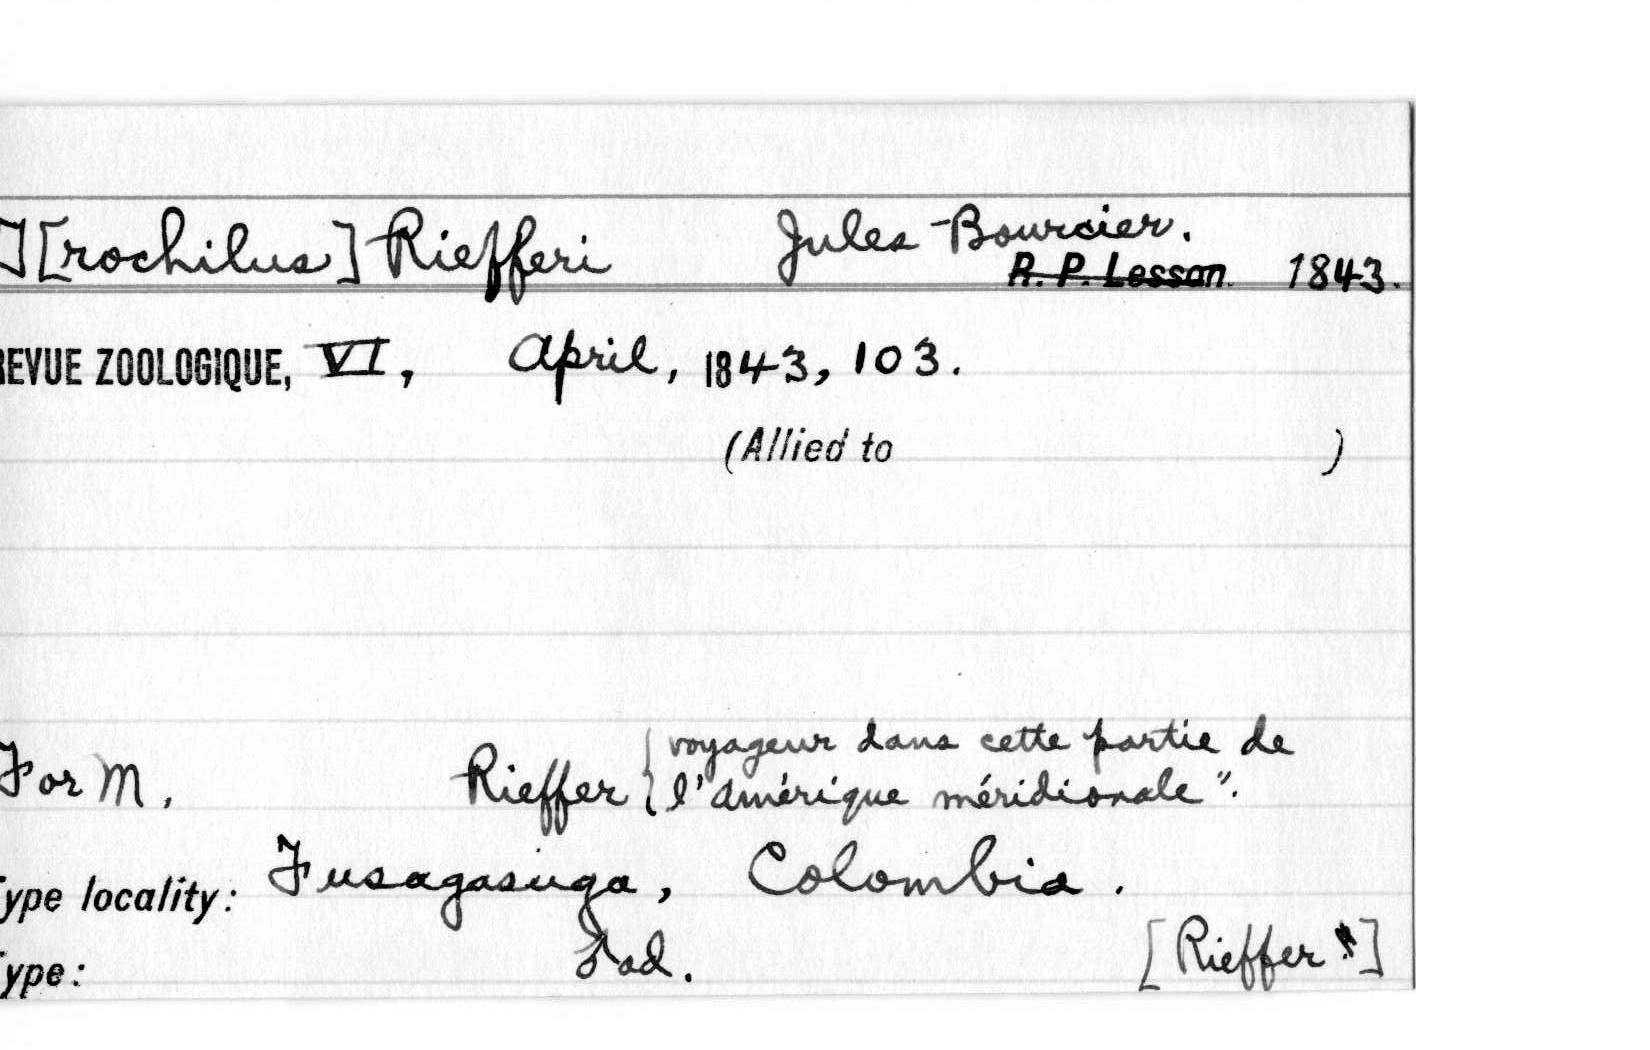 T[rochilus] Riefferi Jules Bourcier.
R. P. Lesson. 1843.
REVUE ZOOLOGIQUE, VI, April, 1843, 103.
(Allied to )
voyageur dans cette partie de
For M. Rieffer { l'Amérique méridionale".
Type locality: Fusagasuga, Colombia.
Type: ad. [Rieffer]